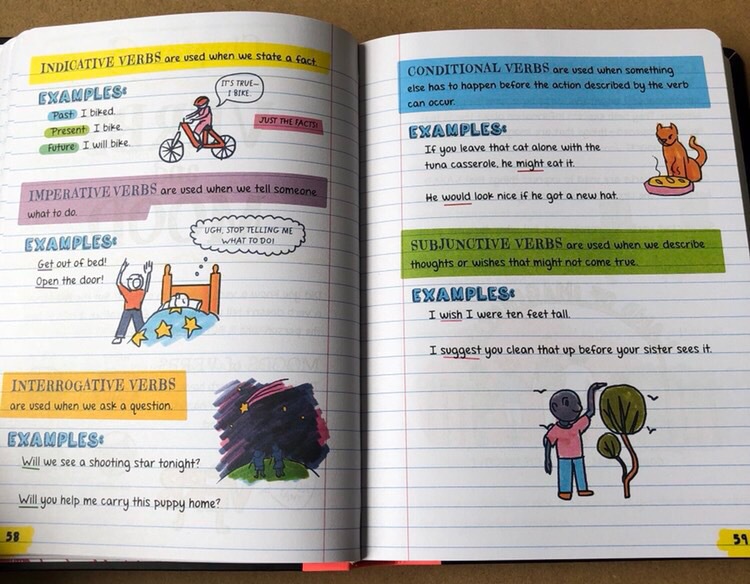 INDICATIVE VERBS are used when we state a fact.
EXAMPLES:
Past I biked.
Present I bike.
Future I will bike.
IT'S TRUE—
I BIKE.
JUST THE FACTS!
IMPERATIVE VERBS are used when we tell someone
what to do.
EXAMPLES:
Get out of bed!
Open the door!
UGH, STOP TELLING ME
WHAT TO DO!
INTERROGATIVE VERBS
are used when we ask a question.
EXAMPLES:
Will we see a shooting star tonight?
Will you help me carry this puppy home?
58
CONDITIONAL VERBS are used when something
else has to happen before the action described by the verb
can occur.
EXAMPLES:
If you leave that cat alone with the
tuna casserole, he might eat it.
He would look nice if he got a new hat.
SUBJUNCTIVE VERBS are used when we describe
thoughts or wishes that might not come true.
EXAMPLES:
I wish I were ten feet tall.
I suggest you clean that up before your sister sees it.
59